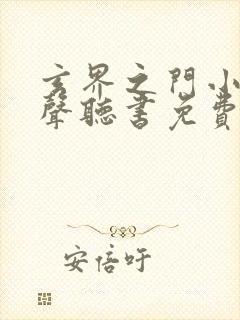 玄界之門小
聲聽書免費
安倍吁